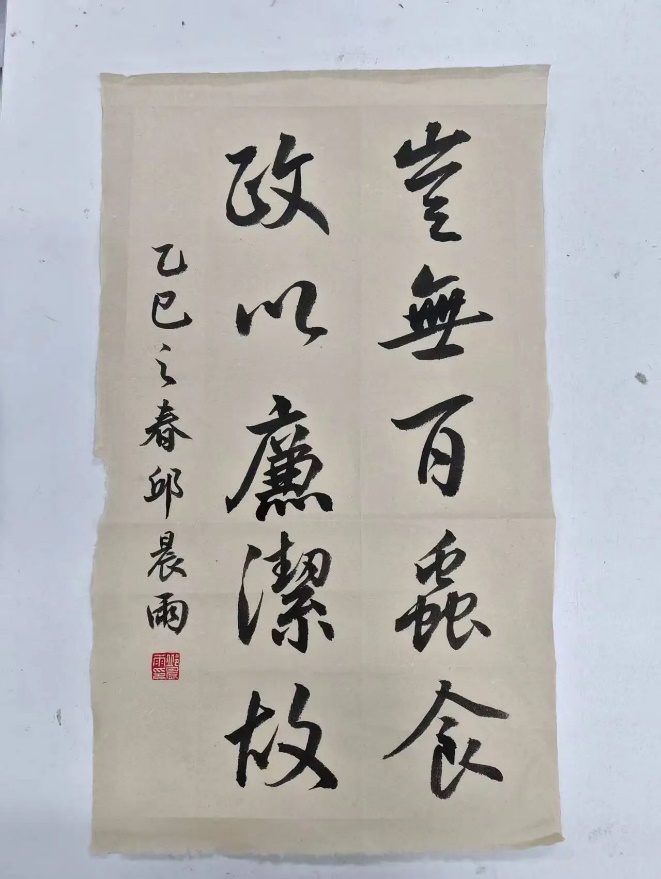 豈無百蟲食
政以廉潔故
乙巳之春邱晨雨